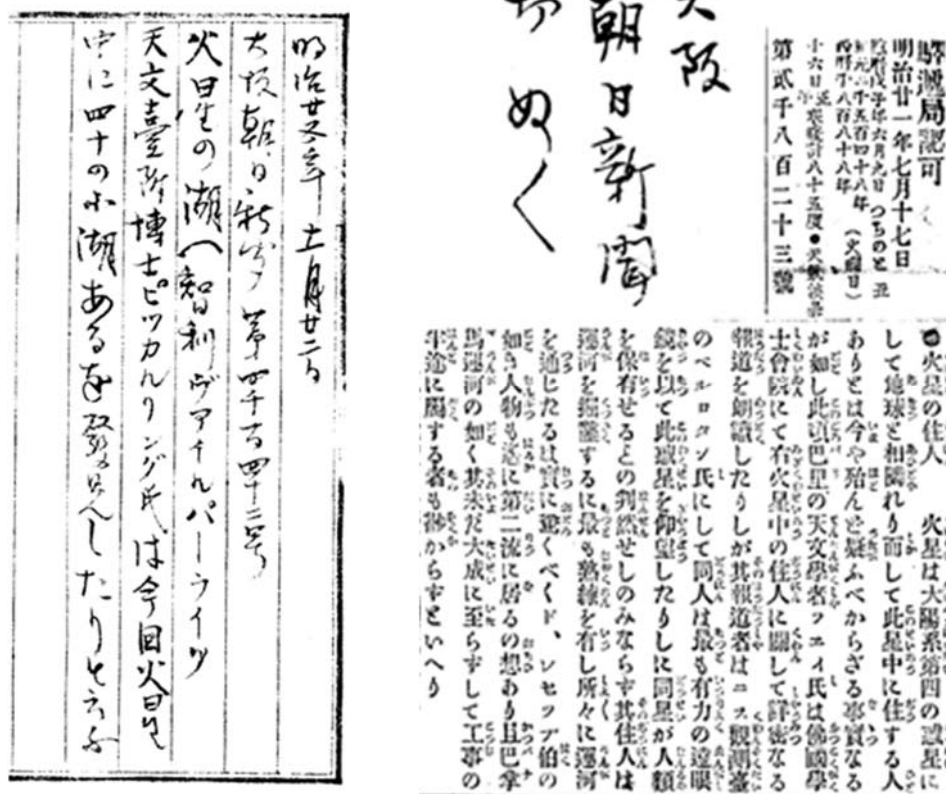 明治廿五年十一月廿二日
大阪朝日新聞 第四千百四十二号
火星の湖 智利ヴアナルパーライソ
天文臺附博士ピツカルリング氏は今回火星
中に四十の小湖あるを發見したりと云ふ
驛遞局認可
明治廿一年七月十七日
陰暦戊子年六月九日 つちのと丑
紀元二千五百四十八年
西暦千八百八十八年 (火曜日)
十六日正午寒暖計八十五度●天氣後曇
第貳千八百二十三號
大阪
朝日新聞
ぬく
●火星の住人 火星は大陽系第四の惑星に
して地球と相隣れり而して此星中に住する人
ありとは今や殆んど疑ふべからざる事實なる
が如し此頃巴里の天文學者フエイ氏は佛國學
士會院にて有火星中の住人に關して詳密なる
報道を朗讀したりしが其報道者はニス觀測臺
のペルロタン氏にして同人は最も有力の遠眼
鏡を以て此惑星を仰望したりしに同星が人類
を保有せるとの判然せしのみならず其住人は
運河を掘鑿するに最も熟練を有し所々に運河
を通じたるは實に驚くべくド、レセツプ伯の
如き人物も遙に第二流に居るの想あり且巴拿
馬運河の如く其未だ大成に至らずして工事の
半途に屬する者も尠からずといへり